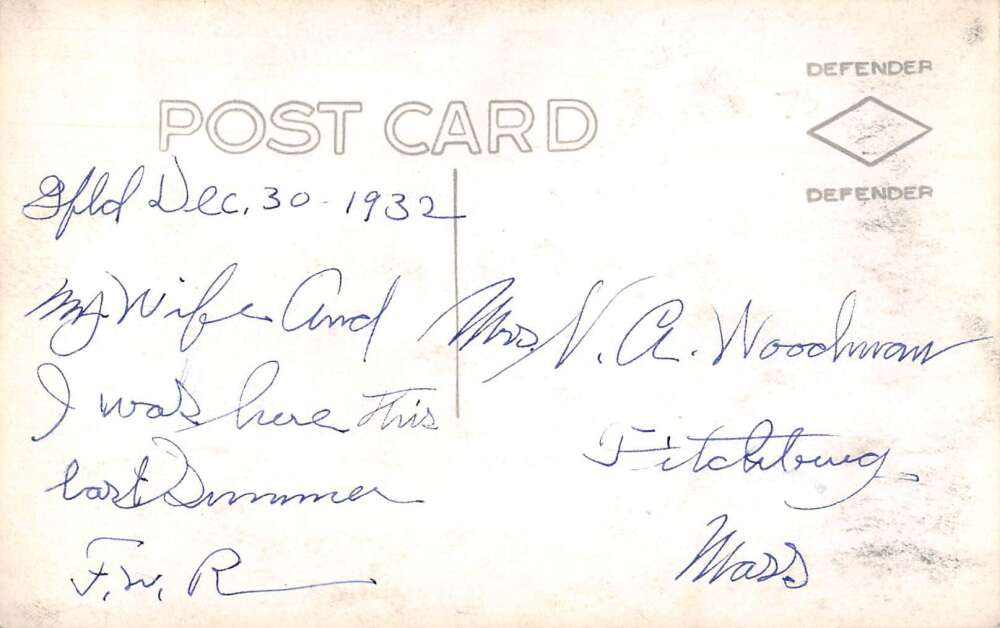 POST CARD
DEFENDER
DEFENDER
Gfld Dec. 30 - 1932
My Wife And
I was here This
last Summer
F. W. R
Mrs. V. A. Woodman
Fitchburg.
Mass